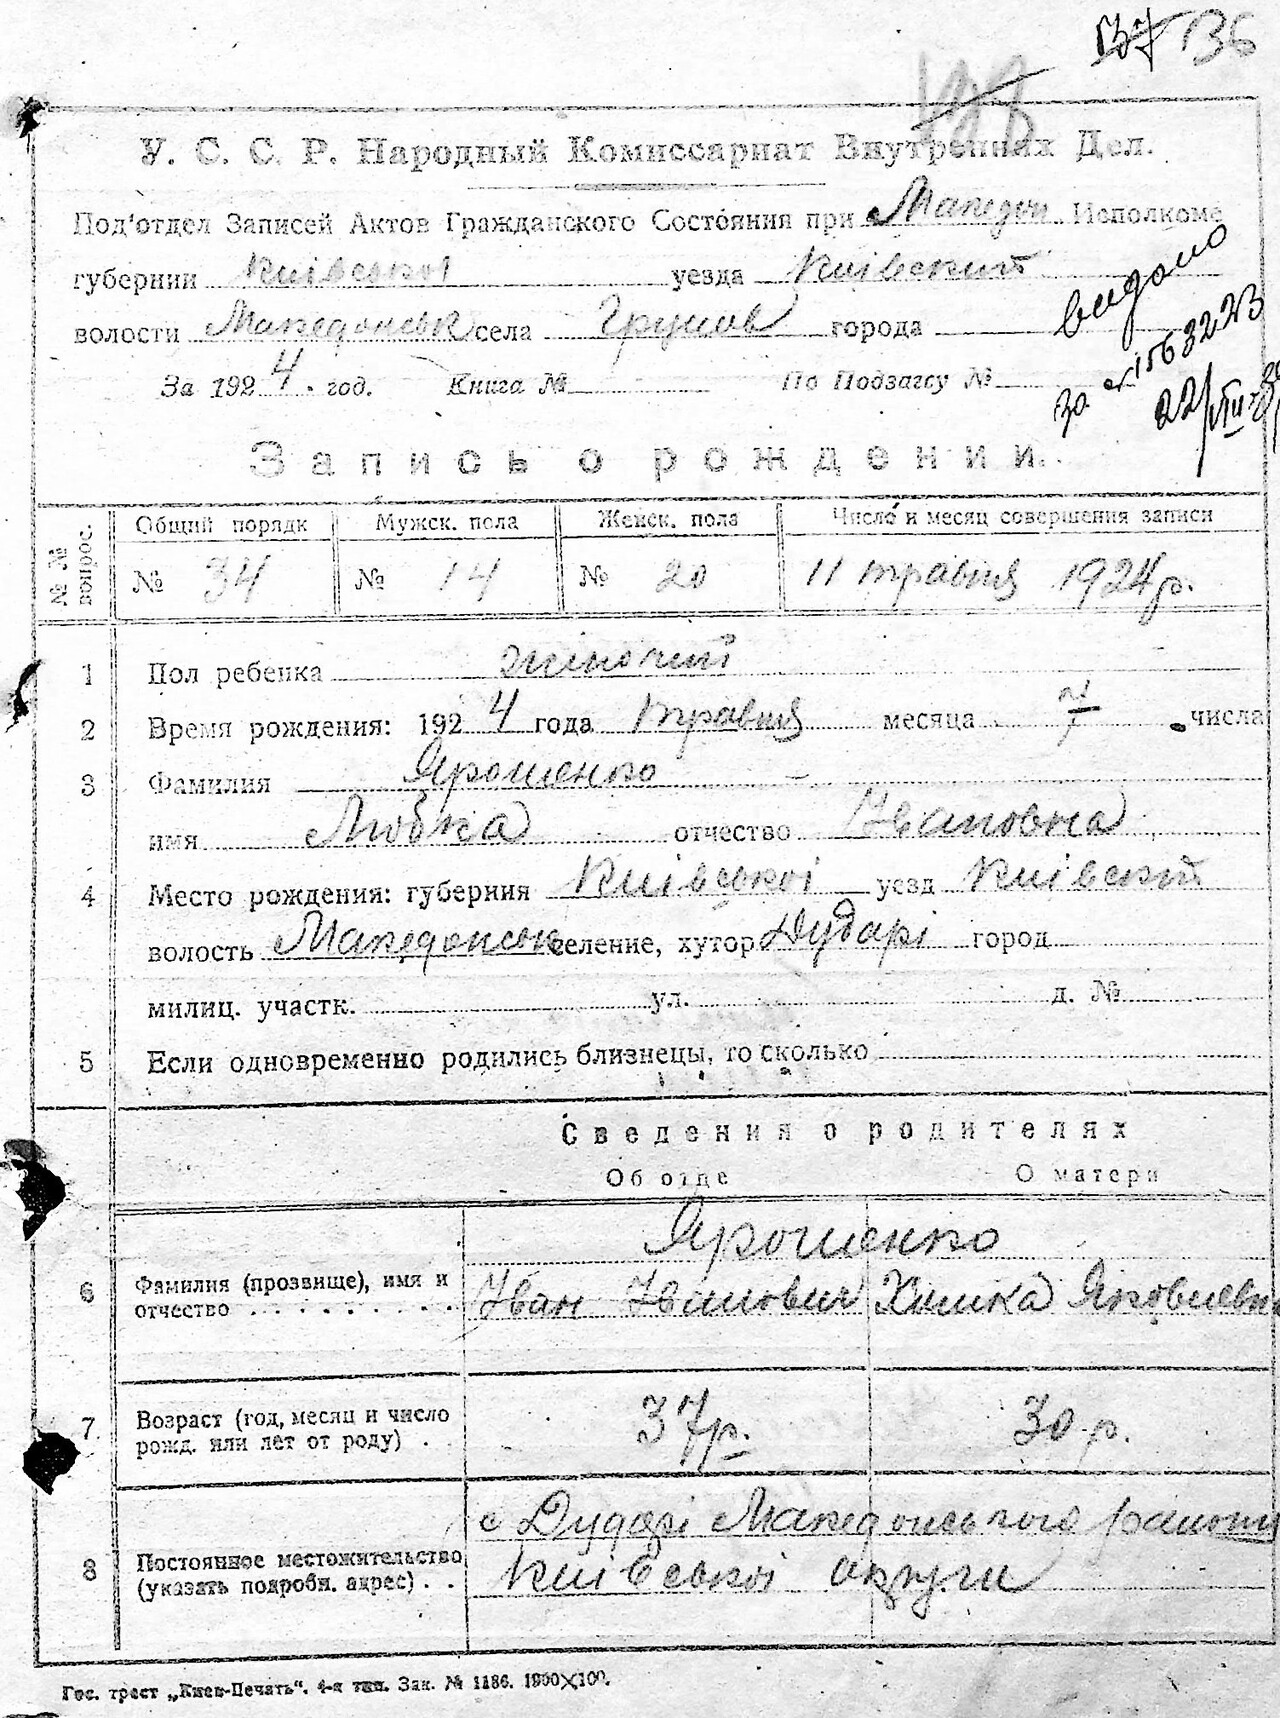 136
У. С. С. Р. Народный Комиссариат Внутренних Дел.
Под'отдел Записей Актов Гражданского Состояния при Македон Исполкоме
губернии Київської уезда Київский
видано
волости Македонськ села Грушов города
за № 1563223
За 1924 . год. Книга № По Подзагсу №
Запись о рождении.
№ № вопрос.
Общий порядк Мужск. пола Женск. пола Число и месяц совершения записи
№ 34 № 14 № 20 11 травня 1924 р.
1 Пол ребенка жіночий
2 Время рождения: 1924 года травня месяца 7 числа
3 Фамилия Ярошенко
имя Любка отчество Івановна
4 Место рождения: губерния Київської уезд Київский
волость Македонськ селение, хутор Дударі город
милиц. участк. ул. д. №
5 Если одновременно родились близнецы, то сколько
Сведения о родителях
Об отце О матери
Ярошенко
6 Фамилия (прозвище), имя и Іван Іванович Химка Яковлевна
отчество . . . . . . . . .
7 Возраст (год, месяц и число 37 р. 30 р.
рожд. или лет от роду) . .
с Дударі Македонського району
8 Постоянное местожительство Київської округи
(указать подробн. адрес) . .
Гос. трест „Киев-Печать“. 4-я тип. Зак. № 1186. 1900×100.